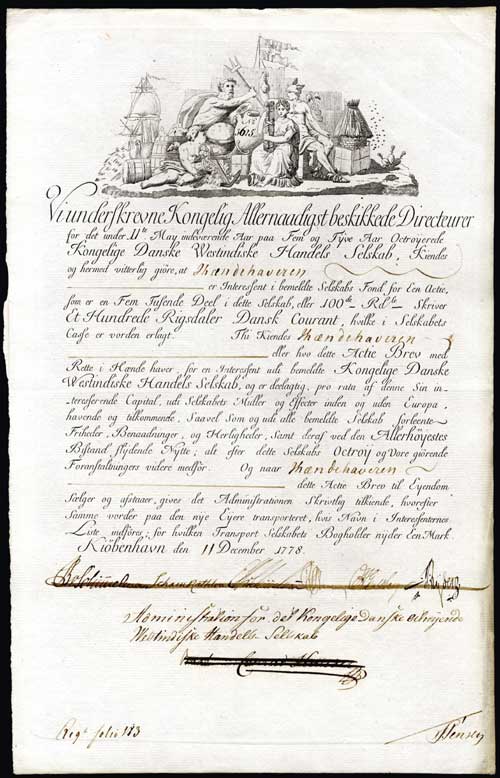 No. 5615
Vi underskrevne Kongelig Allernaadigst beskikkede Directeurer
for det under 11te May indeværende Aar paa Fem og Tyve Aar Octroyerede
Kongelige Danske Westindiske Handels Selskab, Kiendes
og hermed vitterlig giöre, at Ihændehaveren
er Interessent i bemeldte Selskabs Fond for Een Actie,
som er en Fem Tusende Deel i dette Selskab, eller 100de Rdlr Skriver
Et Hundrede Rigsdaler Dansk Courant, hvilke i Selskabets
Casse er vorden erlagt. Thi Kiendes Ihændehaveren
eller hvo dette Actie Brev med
Rette i Hænde haver, for en Interessent udi bemeldte Kongelige Danske
Westindiske Handels Selskab, og er deelagtig, pro rata af denne Sin in-
teresserende Capital, udi Selskabets Midler og Effecter inden og uden Europa,
havende og tilkommende, Saavel Som og udi alle bemeldte Selskab forleente
Friheder, Benaadninger, og Herligheder, Samt deraf ved den Allerhöyestes
Bistand flydende Nytte; alt efter dette Selskabs Octroy og Dore giörende
Foranstaltningers videre medför. Og naar Ihændehaveren
dette Actie Brev til Eyendom
Sælger og afstaaer, gives det Administrationen Skrivtlig tilkiende, hvorefter
Samme vorder paa den nye Ejere transporteret, hvis Navn i Interessenternes
Liste indföres; for hvilken Transport Selskabets Bogholder nyder Een Mark.
Kiöbenhavn den 11 December 1778.
Schimmelmann
Ryberg
Administration for det Kongelige Danske octrojerede
Westindiske Handels Selskab
Regt folio 113
Jensen